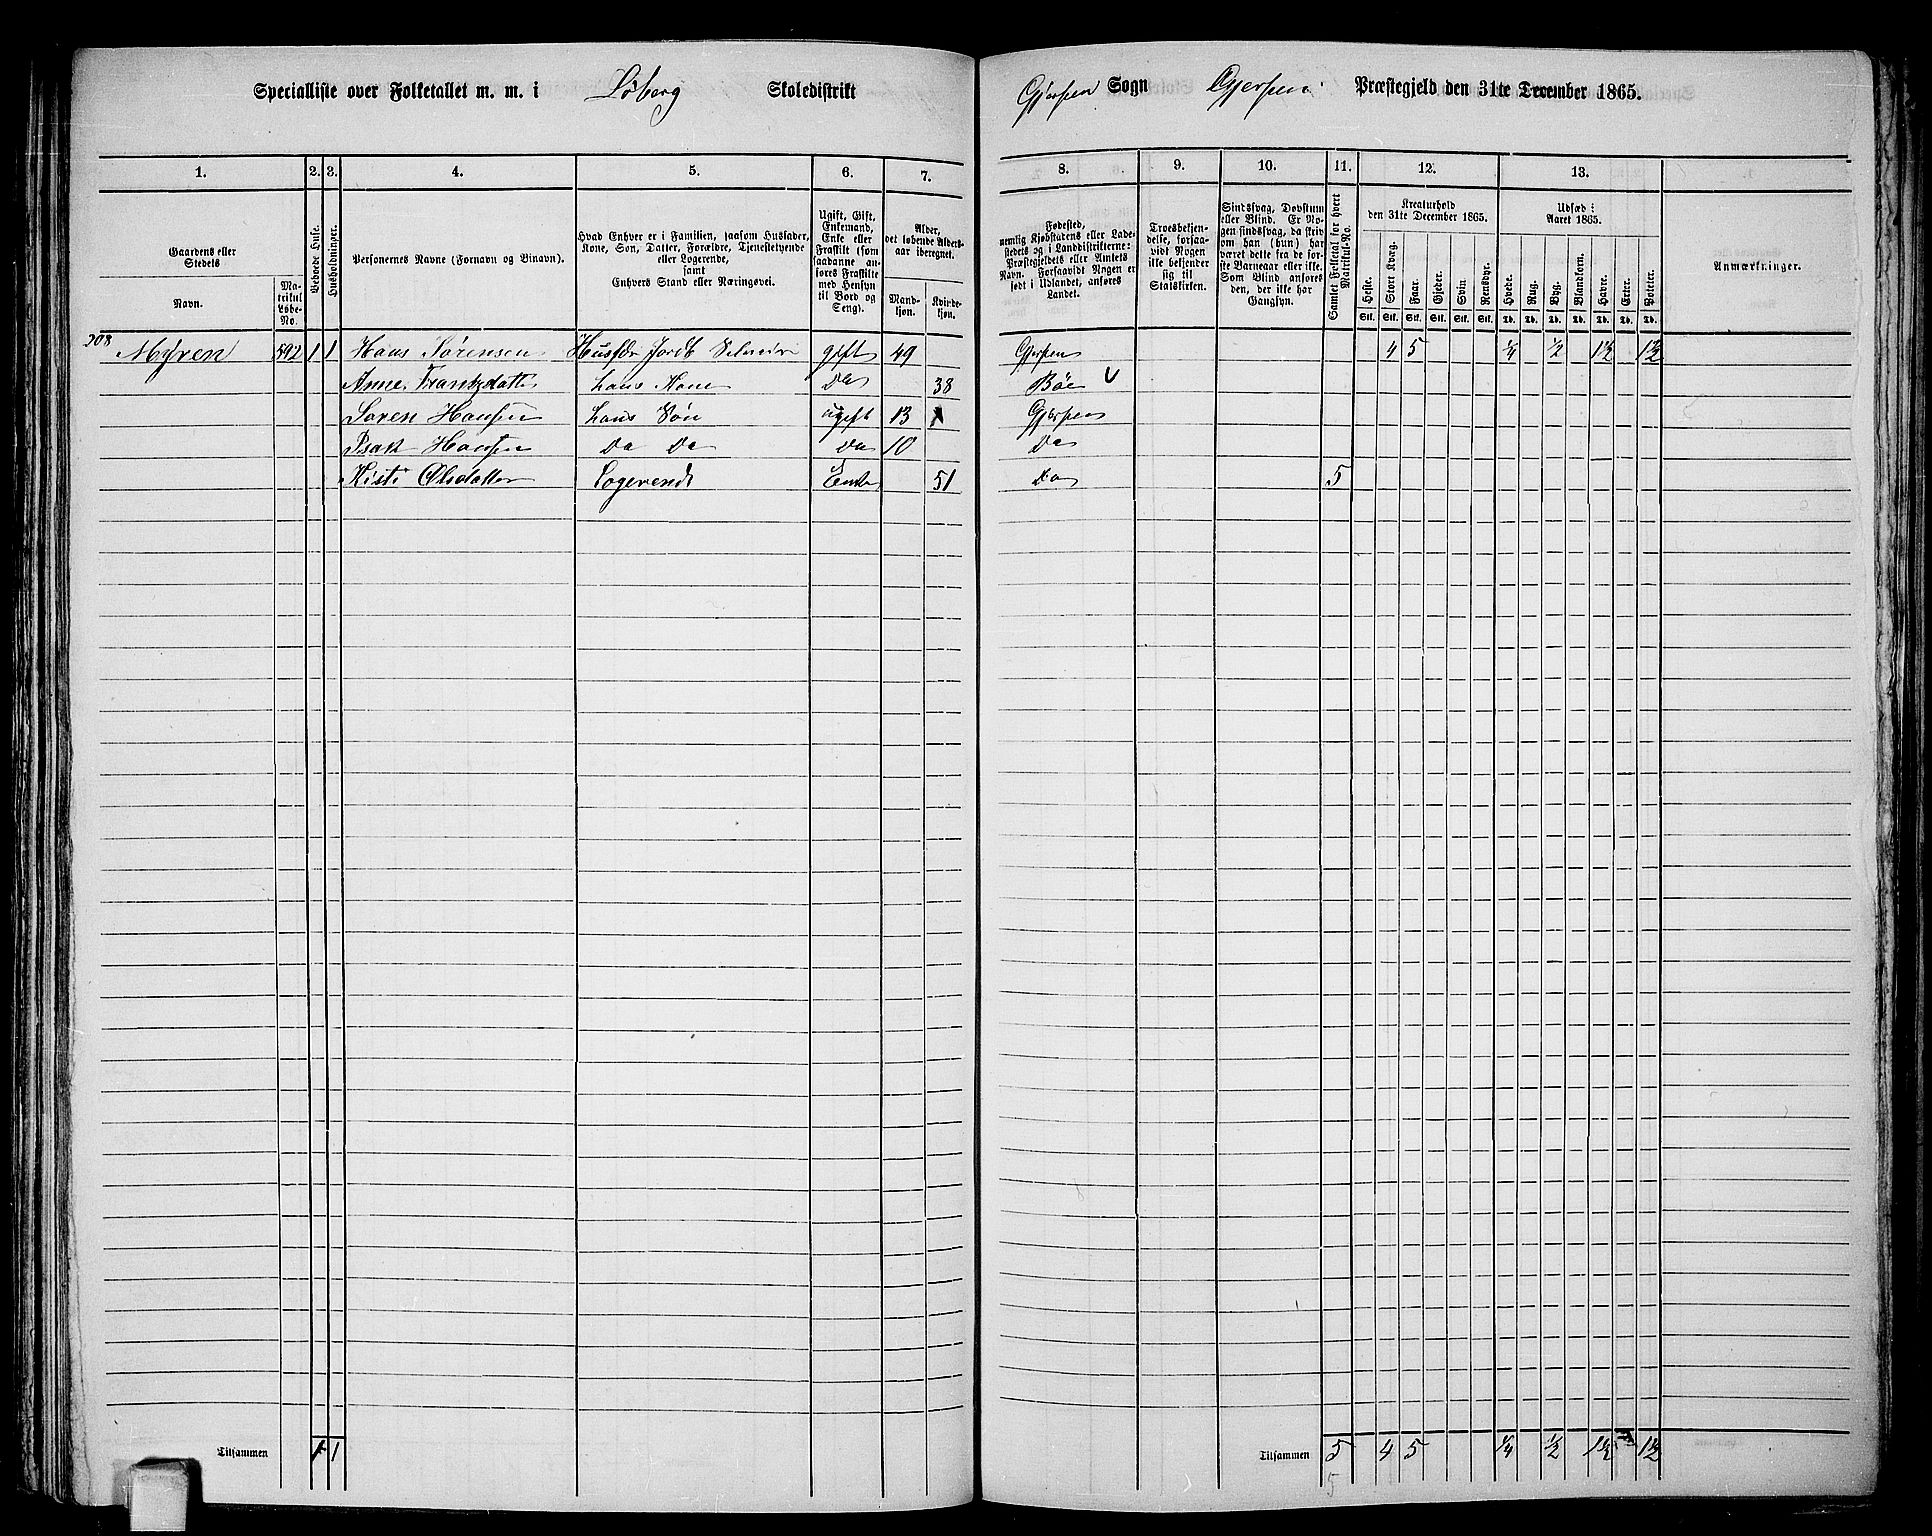 Specialliste over Folketallet m. m. i Løberg Skoledistrikt Gjerpen Sogn Gjerpen Præstegjeld den 31te December 1865.
1. 2. 3. 4. 5. 6. 7. 8. 9. 10. 11. 12. 13.
Gaardens eller Stedets
Navn.
Matrikul Løbe-No.
Beboede Huse.
Husholdninger.
Personernes Navne (Fornavn og Binavn).
Hvad Enhver er i Familien, saasom Husfader, Kone, Son, Datter, Forældre, Tjenestetyende eller Logerende, samt Enhvers Stand eller Næringsvei.
Ugift, Gift, Enkemand, Enke eller Fraskilt (som saadanne anføres Fraskilte med Hensyn til Bord og Seng).
Alder, det løbende Aldersaar iberegnet.
Mandkjøn. Kvindekjøn.
Fødested, nemlig Kjøbstadens eller Ladestedets og i Landdistrikterne: Præstegjeldets eller Amtets Navn. Forsaavidt Nogen er født i Udlandet, anføres Landet.
Troesbekjendelse, forsaavidt Nogen ikke bekjender sig til Statskirken.
Sindssvag, Døvstum eller Blind. Er Nogen sindssvag, da skrives om han (hun) har været dette fra de første Barneaar eller ikke. Som Blind anføres den, der ikke har Gangsyn.
Samlet Folketal for hvert Matrikul-No.
Kreaturhold den 31te December 1865.
Heste. Stort Kvæg. Faar. Gjeder. Svin. Rensdyr.
Stk. Stk. Stk. Stk. Stk. Stk.
Udsæd i Aaret 1865.
Hvede. Rug. Byg. Blandkorn. Havre. Erter. Poteter.
Td. Td. Td. Td. Td. Td. Td.
Anmærkninger.
208
Myren 592 1 1 Hans Sørensen gift 49 Gjerpen 4 5 1/4 1/2 1 1/2 1 1/2
Anne hans Kone Do 38 Bøe V
Søren Hansen hans Søn ugift 13 Gjerpen
Isak Hansen Do Do Do 10 Do
Kisti Olsdatter Logerende Enke 51 Do 5
Tilsammen 1 1 Tilsammen 5 4 5 1/4 1/2 1 1/2 1 1/2
5